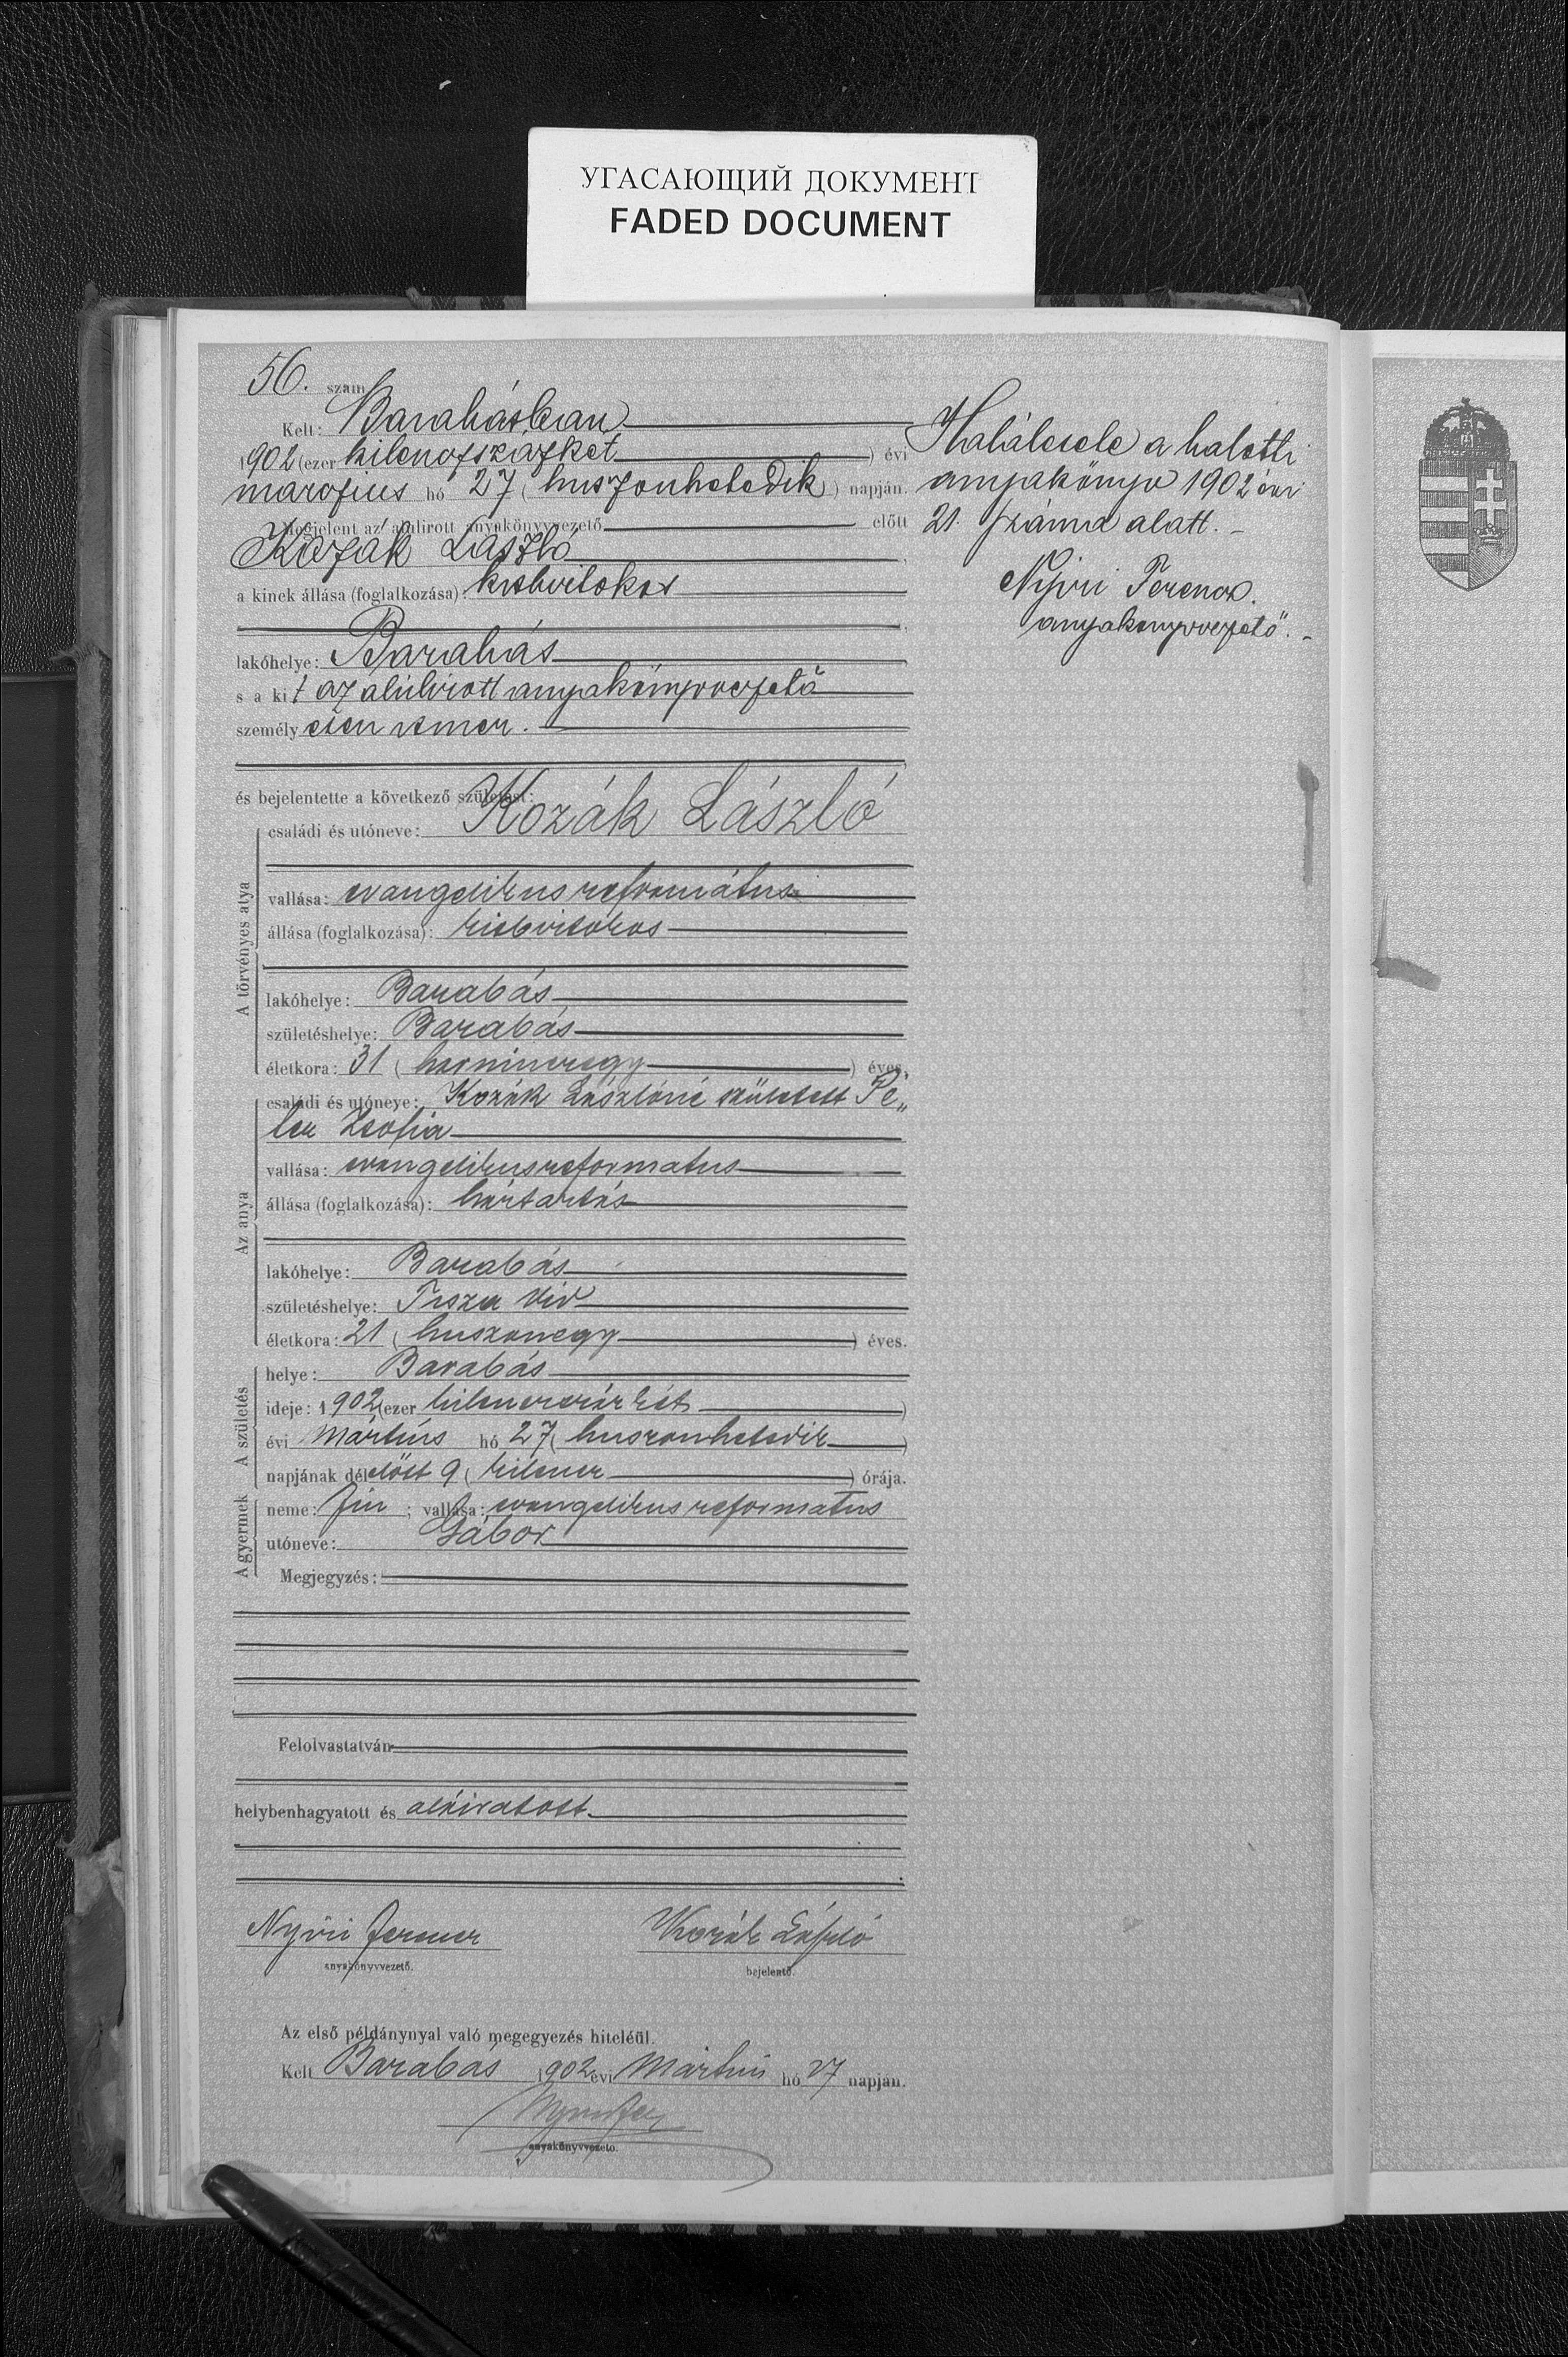 УГАСАЮЩИЙ ДОКУМЕНТ
FADED DOCUMENT
56. szám
Kelt: Barabásban
1902 (ezer kilenczszázkét) évi
márczius hó 27 (huszonhetedik) napján.
Megjelent az alulirott anyakönyvvezető előtt
Kozák László
a kinek állása (foglalkozása): kisbirtokos
lakóhelye: Barabás
s a kit az alulirott anyakönyvvezető
személyesen ismer.
és bejelentette a következő születést:
A törvényes atya
családi és utóneve: Kozák László
vallása: evangelikus református
állása (foglalkozása): kisbirtokos
lakóhelye: Barabás
születéshelye: Barabás
életkora: 31 (harmincegy) éves.
Az anya
családi és utóneve: Kozák Lászlóné született Pé„
ter Zsofia
vallása: evangelikus reformatus
állása (foglalkozása): háztartás
lakóhelye: Barabás
születéshelye: Tisza Vid
életkora: 21 (huszonegy) éves.
A születés
helye: Barabás
ideje: 1902 (ezer kilencszázkét)
évi Mártius hó 27 (huszonhetedik)
napjának délelőtt 9 (kilenc) órája.
A gyermek
neme: fiu; vallása: evangelikus reformatus
utóneve: Gábor
Megjegyzés:
Felolvastatván
helybenhagyatott és aláiratott.
Nyiri Ferencz
anyakönyvvezető.
Kozák László
bejelentő.
Az első példánynyal való megegyezés hiteléül.
Kelt Barabás 1902 évi Mártius hó 27 napján.
Nyiri Fer
anyakönyvvezető.
Halálesete a halotti
anyakönyv 1902 évi
21. száma alatt. –
Nyiri Ferencz.
anyakönyvvezető. –